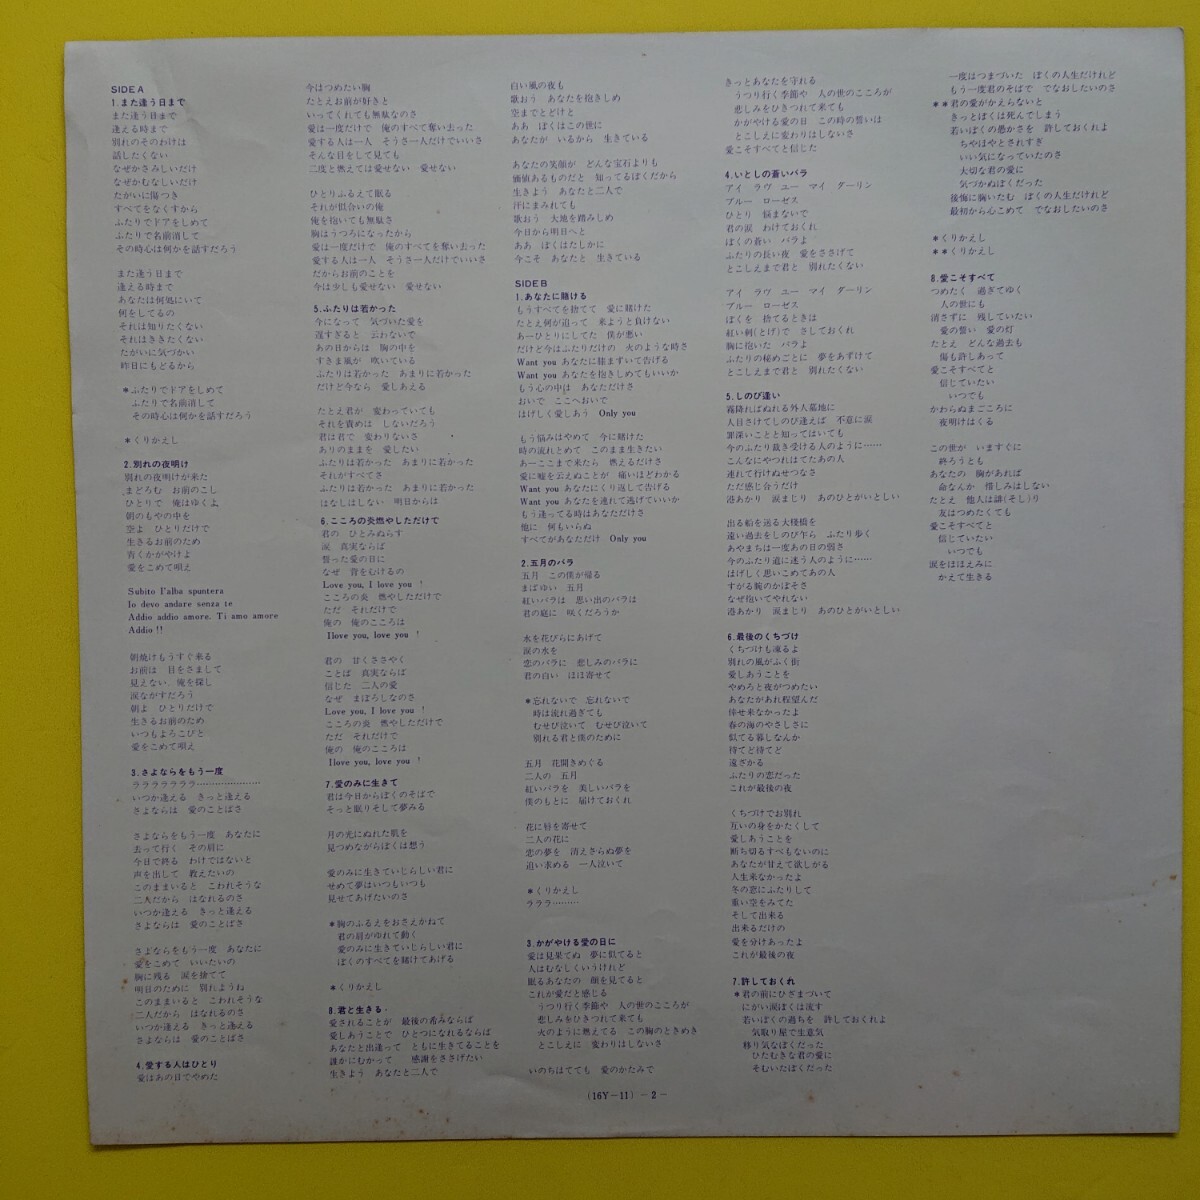 SIDE A
1.また逢う日まで
また逢う日まで
逢える時まで
別れのそのわけは
話したくない
なぜかさみしいだけ
なぜかむなしいだけ
たがいに傷つき
すべてをなくすから
ふたりでドアをしめて
ふたりで名前消して
その時心は何かを話すだろう
また逢う日まで
逢える時まで
あなたは何処にいて
何をしてるの
それは知りたくない
それはききたくない
たがいに気づかい
昨日にもどるから
*ふたりでドアをしめて
ふたりで名前消して
その時心は何かを話すだろう
*くりかえし
2.別れの夜明け
別れの夜明けが来た
まどろむ お前のこし
ひとりで 俺はゆくよ
朝のもやの中を
空よ ひとりだけで
生きるお前のため
青くかがやけよ
愛をこめて唄え
Subito l'alba spuntera
Io devo andare senza te
Addio addio amore. Ti amo amore
Addio!!
朝焼けもうすぐ来る
お前は 目をさまして
見えない、俺を探し
涙ながすだろう
朝よ ひとりだけで
生きるお前のため
いつもよろこびと
愛をこめて唄え
3.さよならをもう一度
ラララララララ…………………
いつか逢える きっと逢える
さよならは 愛のことばさ
さよならをもう一度 あなたに
去って行く その肩に
今日で終る わけではないと
声を出して 教えたいの
このままいると こわれそうな
二人だから はなれるのさ
いつか逢える きっと逢える
さよならは 愛のことばさ
さよならをもう一度 あなたに
愛をこめて いいたいの
胸に残る 涙を捨てて
明日のために 別れようね
このままいると こわれそうな
二人だから はなれるのさ
いつか逢える きっと逢える
さよならは 愛のことばさ
4.愛する人はひとり
愛はあの日でやめた
今はつめたい胸
たとえお前が好きと
いってくれても無駄なのさ
愛は一度だけで 俺のすべて奪い去った
愛する人は一人 そうさ一人だけでいいさ
そんな目をして見ても
二度と燃えては愛せない 愛せない
ひとりふるえて眠る
それが似合いの俺
俺を抱いても無駄さ
胸はうつろになったから
愛は一度だけで 俺のすべてを奪い去った
愛する人は一人 そうさ一人だけでいいさ
だからお前のことを
今は少しも愛せない 愛せない
5.ふたりは若かった
今になって 気づいた愛を
遅すぎると 云わないで
あの日からは 胸の中を
すきま風が 吹いている
ふたりは若かった あまりに若かった
だけど今なら 愛しあえる
たとえ君が 変わっていても
それを責めは しないだろう
君は君で 変わりないさ
ありのままを 愛したい
ふたりは若かった あまりに若かった
それがすべてさ
ふたりは若かった あまりに若かった
はなしはしない 明日からは
6.こころの炎燃やしただけで
君の ひとみぬらす
涙 真実ならば
誓った愛の日に
なぜ 背をむけるの
Love you, I love you !
こころの炎 燃やしただけで
ただ それだけで
俺の 俺のこころは
I love you, love you !
君の 甘くささやく
ことば 真実ならば
信じた 二人の愛
なぜ まぼろしなのさ
Love you, I love you !
こころの炎 燃やしただけで
ただ それだけで
俺の 俺のこころは
I love you, love you !
7.愛のみに生きて
君は今日からぼくのそばで
そっと眠りそして夢みる
月の光にぬれた肌を
見つめながらぼくは想う
愛のみに生きていじらしい君に
せめて夢はいつもいつも
見せてあげたいのさ
*胸のふるえをおさえかねて
君の肩がゆれて動く
愛のみに生きていじらしい君に
ぼくのすべてを賭けてあげる
*くりかえし
8.君と生きる
愛されることが 最後の希みならば
愛しあうことで ひとつになれるならば
あなたと出逢って ともに生きてることを
誰かにむかって 感謝をささげたい
生きよう あなたと二人で
白い風の夜も
歌おう あなたを抱きしめ
空までとどけと
ああ ぼくはこの世に
あなたが いるから 生きている
あなたの笑顔が どんな宝石よりも
価値あるものだと 知ってるぼくだから
生きよう あなたと二人で
汗にまみれても
歌おう 大地を踏みしめ
今日から明日へと
ああ ぼくはたしかに
今こそ あなたと 生きている
SIDE B
1.あなたに賭ける
もうすべてを捨てて 愛に賭けた
たとえ何が迫って 来ようと負けない
あーひとりにしてた 僕が悪い
だけど今はふたりだけの 火のような時さ
Want you あなたに膝まずいて告げる
Want you あなたを抱きしめてもいいか
もう心の中は あなただけさ
おいで ここへおいで
はげしく愛しあう Only you
もう悩みはやめて 今に賭けた
時の流れとめて このまま生きたい
あーここまで来たら 燃えるだけさ
愛に嘘を云えぬことが 痛いほどわかる
Want you あなたにくり返して告げる
Want you あなたを連れて逃げていいか
もう迷ってる時はあなただけさ
他に 何もいらぬ
すべてがあなただけ Only you
2.五月のバラ
五月 この僕が帰る
まばゆい 五月
紅いバラは 思い出のバラは
君の庭に 咲くだろうか
水を花びらにあげて
涙の水を
恋のバラに 悲しみのバラに
君の白い ほほ寄せて
*忘れないで 忘れないで
時は流れ過ぎても
むせび泣いて むせび泣いて
別れる君と僕のために
五月 花開きめぐる
二人の 五月
紅いバラを 美しいバラを
僕のもとに 届けておくれ
花に唇を寄せて
二人の花に
恋の夢を 消えさらぬ夢を
追い求める 一人泣いて
*くりかえし
ラララ………
3.かがやける愛の日に
愛は見果てぬ 夢に似てると
人はむなしくいうけれど
眠るあなたの 顔を見てると
これが愛だと感じる
うつり行く季節や 人の世のこころが
悲しみをひきつれて来ても
火のように燃えてる この胸のときめき
とこしえに 変わりはしないさ
いのちはてても 愛のかたみで
きっとあなたを守れる
うつり行く季節や 人の世のこころが
悲しみをひきつれて来ても
かがやける愛の日 この時の誓いは
とこしえに変わりはしないさ
愛こそすべてと信じた
4.いとしの蒼いバラ
アイ ラヴ ユー マイ ダーリン
ブルー ローゼス
ひとり 悩まないで
君の涙 わけておくれ
ぼくの蒼い バラよ
ふたりの長い夜 愛をささげて
とこしえまで君と 別れたくない
アイ ラヴ ユー マイ ダーリン
ブルー ローゼス
ぼくを 捨てるときは
紅い刺(とげ)で さしておくれ
胸に抱いた バラよ
ふたりの秘めごとに 夢をあずけて
とこしえまで君と 別れたくない
5.しのび逢い
霧降ればぬれる外人墓地に
人目さけてしのび逢えば 不意に涙
罪深いことと知ってはいても
今のふたり裁き受ける人のように……
こんなにやつれはてたあの人
連れて行けぬせつなさ
ただ感じ合うだけ
港あかり 涙まじり あのひとがいとしい
出る船を送る大桟橋を
遠い過去をしのび乍ら ふたり歩く
あやまちは一度あの日の弱さ
今のふたり道に迷う人のように……
はげしく思いこめてあの人
すがる腕のかぼそさ
なぜ抱いてやれない
港あかり 涙まじり あのひとがいとしい
6.最後のくちづけ
くちづけも凍るよ
別れの風がふく街
愛しあうことを
やめろと夜がつめたい
あなたがあれ程望んだ
倖せ来なかったよ
春の海のやさしさに
似てる暮しなんか
待てど待てど
遠ざかる
ふたりの恋だった
これが最後の夜
くちづけでお別れ
互いの身をかたくして
愛しあうことを
断ち切るすべもないのに
あなたが甘えて欲しがる
人生来なかったよ
冬の窓にふたりして
重い空をみてた
そして出来る
出来るだけの
愛を分けあったよ
これが最後の夜
7.許しておくれ
*君の前にひざまづいて
にがい涙ぼくは流す
若いぼくの過ちを 許しておくれよ
気取り屋で生意気
移り気なぼくだった
ひたむきな君の愛に
そむいたぼくだった
一度はつまづいた ぼくの人生だけれど
もう一度君のそばで でなおしたいのさ
**君の愛がかえらないと
きっとぼくは死んでしまう
若いぼくの愚かさを 許しておくれよ
ちやほやとされすぎ
いい気になっていたのさ
大切な君の愛に
気づかぬぼくだった
後悔に胸いたむ ぼくの人生だけれど
最初から心こめて でなおしたいのさ
*くりかえし
**くりかえし
8.愛こそすべて
つめたく 過ぎてゆく
人の世にも
消さずに 残していたい
愛の誓い 愛の灯
たとえ どんな過去も
傷も許しあって
愛こそすべてと
信じていたい
いつでも
かわらぬまごころに
夜明けはくる
この世が いますぐに
終ろうとも
あなたの 胸があれば
命なんか 惜しみはしない
たとえ 他人は誹(そし)り
友はつめたくても
愛こそすべてと
信じていたい
いつでも
涙をほほえみに
かえて生きる
(16Y-11) -2-